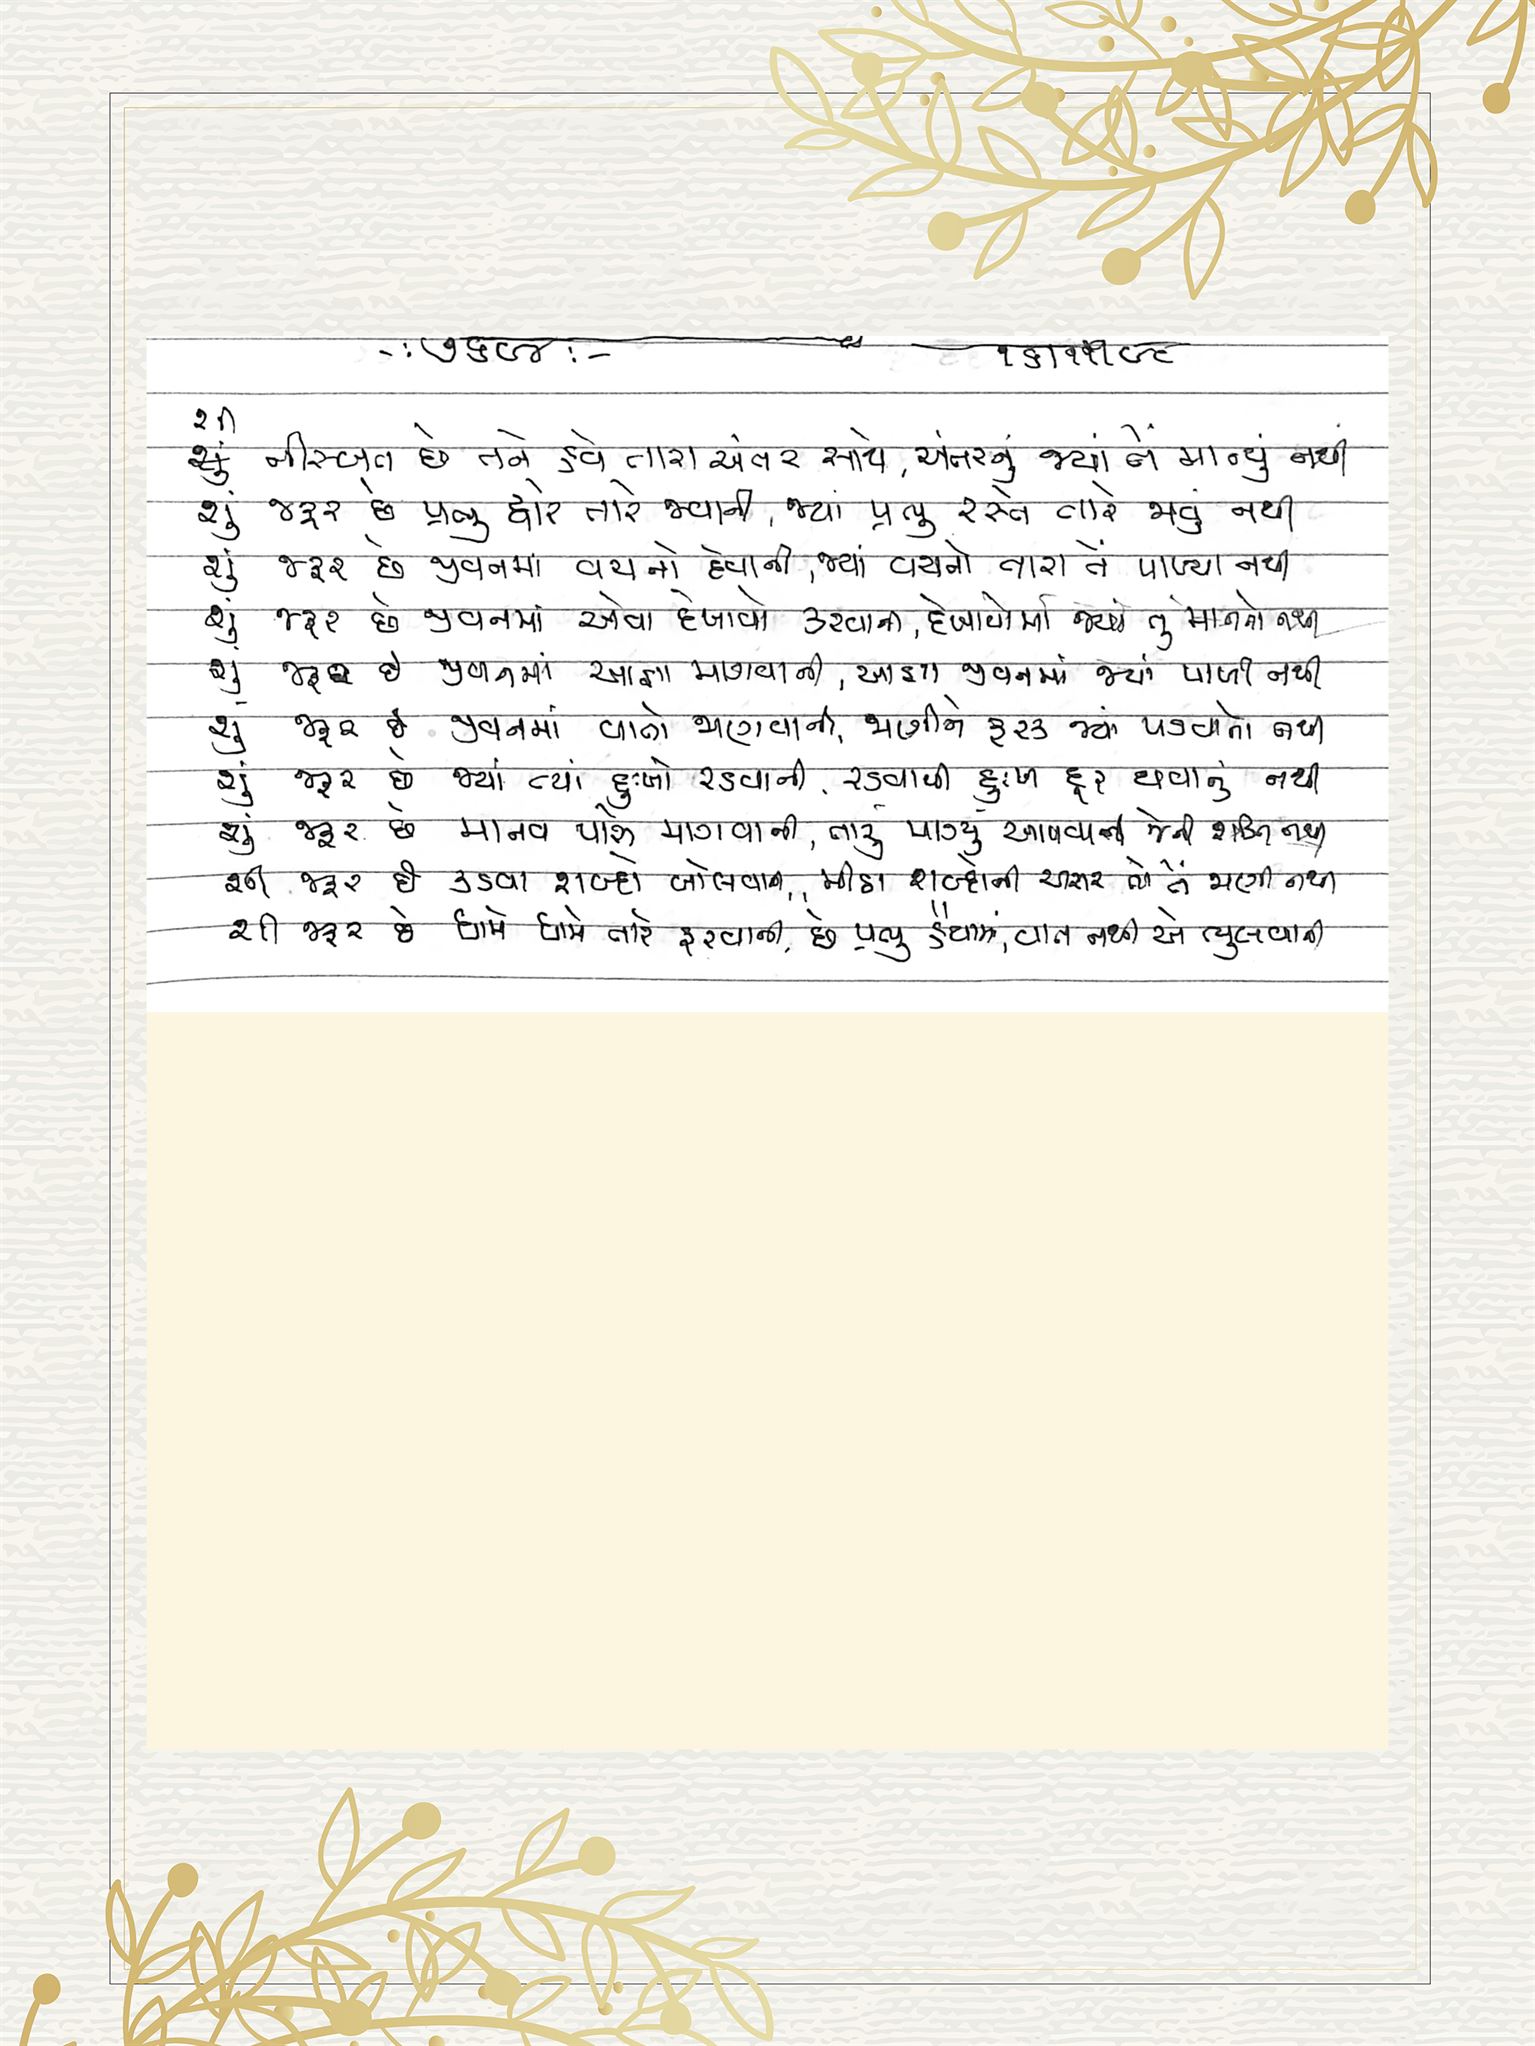 -: ૭૬૯૪ :- ૧૬/૧૧/૯૮
શી
નીસ્બત છે તને હવે તારા અંતર સાથે, અંતરનું જ્યાં તેં માન્યું નથી
શું જરૂર છે પ્રભુ દ્વારે તારે જવાની, જ્યાં પ્રભુ રસ્તે તારે જાવું નથી
શું જરૂર છે જીવનમાં વચનો દેવાની, જ્યાં વચનો તારા તેં પાળ્યા નથી
શું જરૂર છે જીવનમાં એવા દેખાવો કરવાની, દેખાવોમાં જ્યાં તું માનતો નથી
શું જરૂર છે જીવનમાં આજ્ઞા માગવાની, આજ્ઞા જીવનમાં જ્યાં પાળી નથી
શું જરૂર છે જીવનમાં વાતો જાણવાની, જાણીને ફરક જ્યાં પડવાનો નથી
શું જરૂર છે જ્યાં ત્યાં દુઃખો રડવાની, રડવાથી દુઃખ દૂર થાવાનું નથી
શું જરૂર છે માનવ પાસે માગવાની, તારું માગ્યું આપવાની જેની શક્તિ નથી
શી જરૂર છે કડવા શબ્દો બોલવાની, મીઠા શબ્દોની અસર તો તેં જાણી નથી
શી જરૂર છે ધામે ધામે તારે ફરવાની, છે પ્રભુ હૈયામાં, વાત નથી એ ભુલવાની